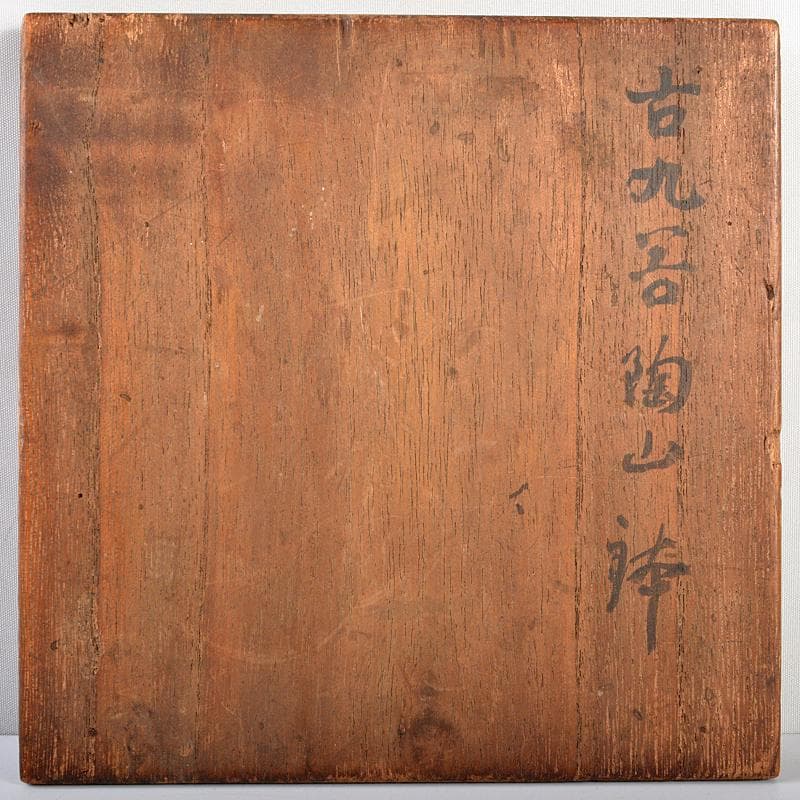 古九谷陶山鉢